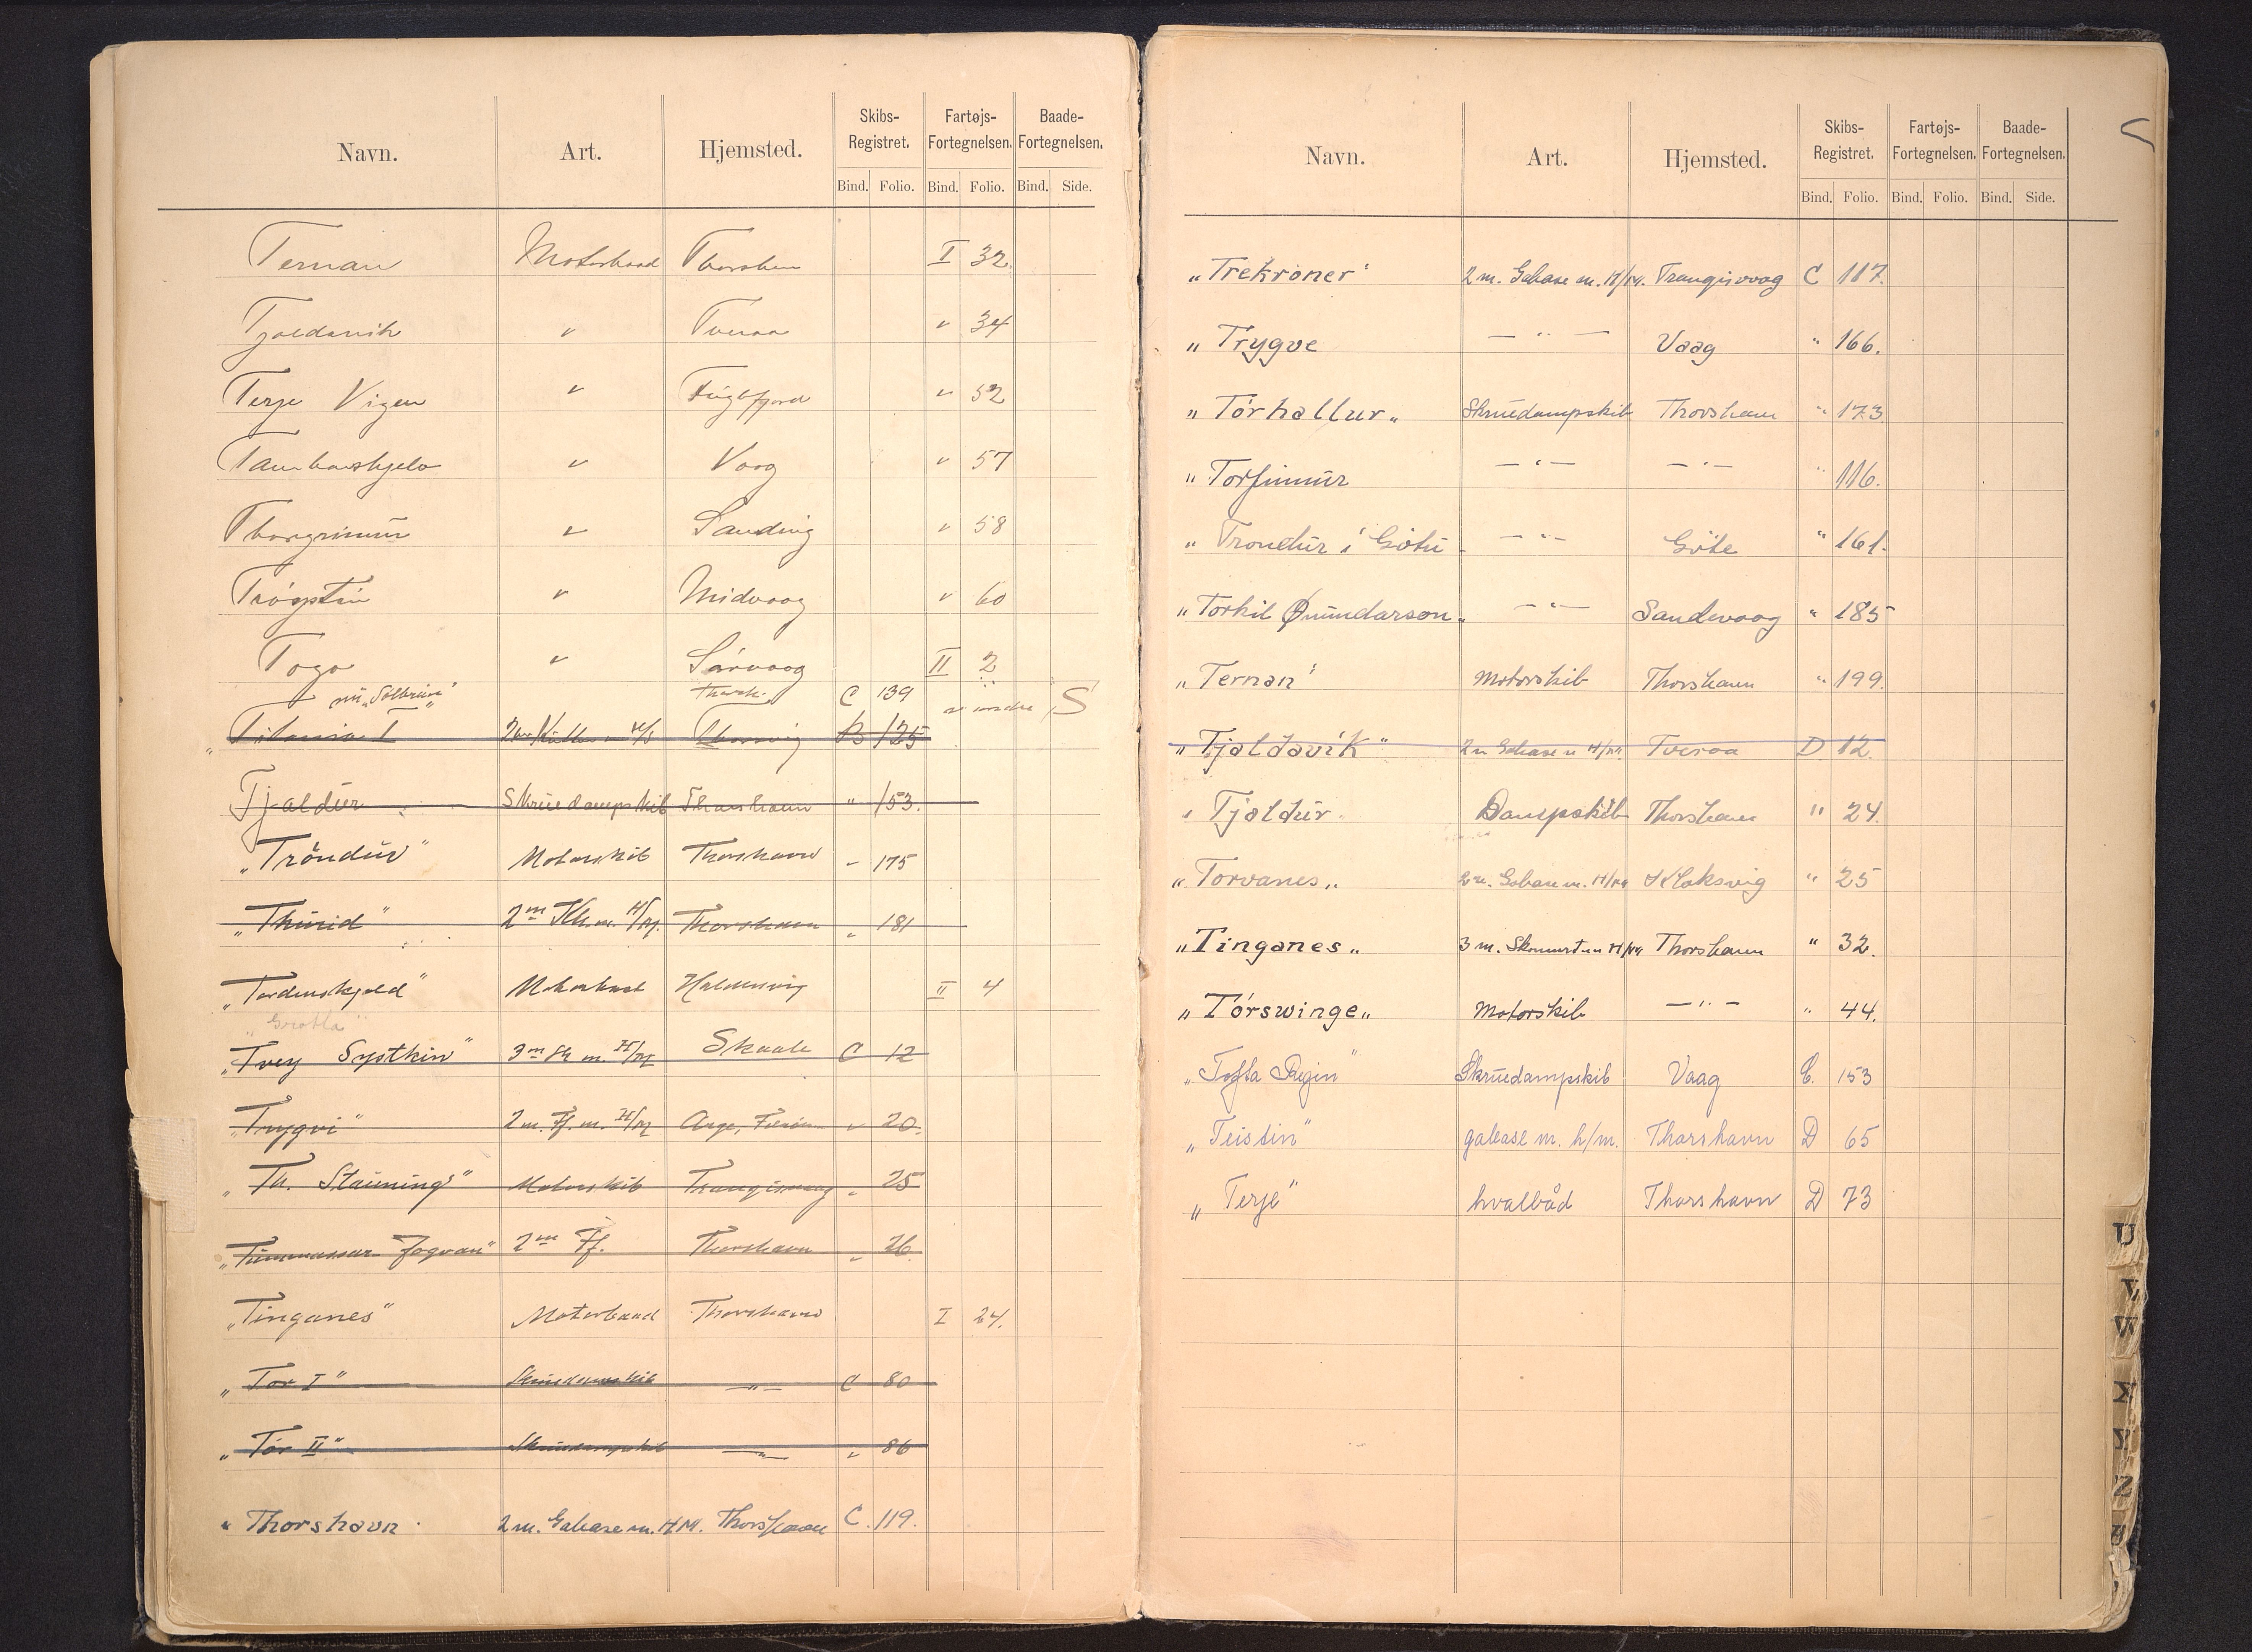 Navn. Art. Hjemsted. Skibs-Registret. Fartøjs-Fortegnelsen. Baade-Fortegnelsen.
Bind. Folio. Bind. Folio. Bind. Side.
Ternan Motorbaad Thorshavn I 32
Tjaldavik " Tveraa " 34
Terje Vigen " Fuglefjord " 52
Tambarskjelv " Vaag " 57
Thorgrimur " Sanding " 58
Tróystin " Midvaag " 60
Togo " Sörvaag II 2
nu "Sólbrún" Thorsh. C 139 S
"Titania I B 125
Tjaldur Skruedampskib Thorshavn " 153.
"Tróndur" Motorskib Thorshavn " 175
"Thurid" 2m Sk. m. H/M. Thorshavn " 181
"Tordenskjold" Motorbaad Haldersvig II 4
"Tvey Systkin" 3m Sk m. H/M Skaale C 12
"Trygvi" 2 m. Ff. m. H/M Arge, Færöerne " 20.
"Th. Stauning" Motorskib Trangisvaag " 25
"Tummassar Jogvan" 2m Ff. Thorshavn " 26
"Tinganes" Motorbaad Thorshavn I 24.
"Tor I" Skruedampskib — " — C 80
"Tor II" Skruedampskib — " — " 86
"Thorshavn 2 m. Galease m. H M. Thorshavn C. 119.
Navn. Art. Hjemsted. Skibs-Registret. Fartøjs-Fortegnelsen. Baade-Fortegnelsen.
Bind. Folio. Bind. Folio. Bind. Side.
"Trekroner" 2 m. Galease m. H/M. Trangisvaag C 117.
"Trygve — " — Vaag " 166.
"Tórhallur" Skruedampskib Thorshavn " 173
"Torfinnur — " — — " — " 116.
"Trondur i Götu — " — Göte " 161.
"Torkil Ønundarson" — " — Sandevaag " 185
"Ternan" Motorskib Thorshavn " 199.
"Tjaldavík" 2 m Galease m H/M. Tveraa D 12.
"Tjaldur. Dampskib Thorshavn " 24.
"Torvanes" 2 m. Galease m. H/M Klaksvig " 25
"Tinganes" 3 m. Skonnert m H/M Thorshavn " 32.
"Tórswinge" Motorskib — " — " 44.
"Tofta Regin" Skruedampskib Vaag C. 153
"Teistin" galease m. h/m. Thorshavn D 65
"Terje" hvalbåd Thorshavn D 73
U
V
W
X
Y
Z